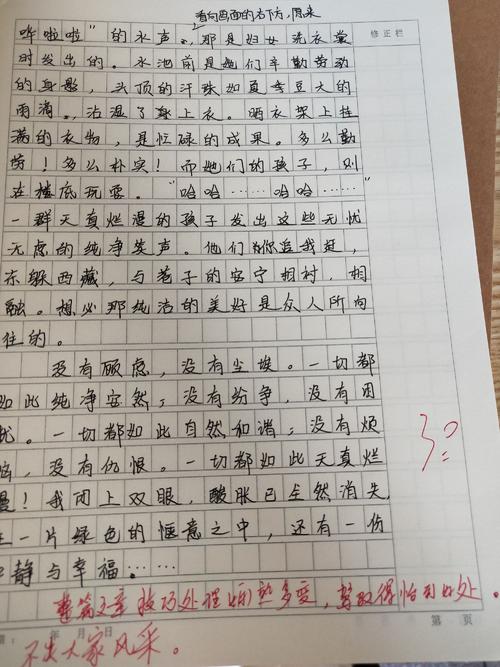 看向画面的右下方,原来
修正栏
哗啦啦”的水声。那是妇女洗衣裳
时发出的。水池前是她们辛勤劳动
的身影,头顶的汗珠如夏季豆大的
雨滴。沾湿了身上衣。晒衣架上挂
满的衣物,是忙碌的成果。多么勤
劳!多么朴实!而她们的孩子,则
在楼底玩耍。“哈哈……哈哈……”
一群天真烂漫的孩子发出这些无忧
无虑的纯净笑声。他们你追我赶,
东躲西藏,与巷子的安宁相衬,相
融。想必那纯洁的美好是众人所向
往的。
没有顾虑,没有尘埃。一切都
如此纯净安然;没有纷争,没有困
扰。一切都如此自然和谐;没有烦
恼,没有仇恨。一切都如此天真烂
漫!我闭上双眼,酸胀已全然消失
在一片绿色的惬意之中,还有一份
宁静与幸福……
整篇文章技巧处理娴熟多变,剪取得恰到好处。
年 月 日
第 页
不失大家风采。